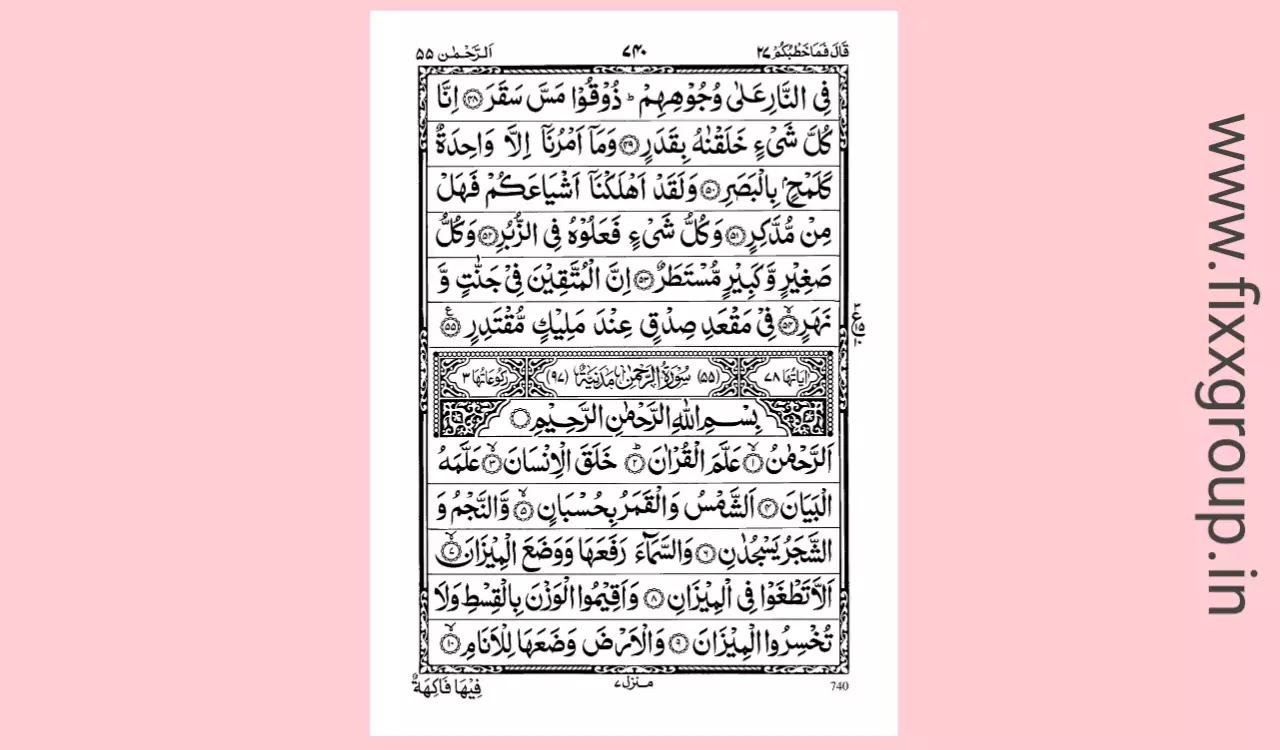 قَالَ فَمَا خَطْبُكُمْ ٢٧
٧٤٠
اَلرَّحْمٰن ٥٥
فِى النَّارِ عَلٰى وُجُوْهِهِمْ ؕ ذُوْقُوْا مَسَّ سَقَرَ ﴿۴۸﴾ اِنَّا
كُلَّ شَىْءٍ خَلَقْنٰهُ بِقَدَرٍ ﴿۴۹﴾ وَمَاۤ اَمْرُنَاۤ اِلَّا وَاحِدَةٌ
كَلَمْحٍۭ بِالْبَصَرِ ﴿۵۰﴾ وَلَقَدْ اَهْلَكْنَاۤ اَشْيَاعَكُمْ فَهَلْ
مِنْ مُّدَّكِرٍ ﴿۵۱﴾ وَكُلُّ شَىْءٍ فَعَلُوْهُ فِى الزُّبُرِ ﴿۵۲﴾ وَكُلُّ
صَغِيْرٍ وَّكَبِيْرٍ مُّسْتَطَرٌ ﴿۵۳﴾ اِنَّ الْمُتَّقِيْنَ فِىْ جَنّٰتٍ وَّ
نَهَرٍ ﴿۵۴﴾ۙ فِىْ مَقْعَدِ صِدْقٍ عِنْدَ مَلِيْكٍ مُّقْتَدِرٍ ﴿۵۵﴾
اٰيَاتُهَا ٧٨ (٥٥) سُوْرَةُ الرَّحْمٰنِ مَدَنِيَّةٌ (٩٧) رُكُوْعَاتُهَا ٣
بِسْمِ اللّٰهِ الرَّحْمٰنِ الرَّحِيْمِ
اَلرَّحْمٰنُ ﴿۱﴾ۙ عَلَّمَ الْقُرْاٰنَ ﴿۲﴾ؕ خَلَقَ الْاِنْسَانَ ﴿۳﴾ۙ عَلَّمَهُ
الْبَيَانَ ﴿۴﴾ اَلشَّمْسُ وَالْقَمَرُ بِحُسْبَانٍ ﴿۵﴾ۙ وَّالنَّجْمُ وَ
الشَّجَرُ يَسْجُدٰنِ ﴿۶﴾ وَالسَّمَآءَ رَفَعَهَا وَوَضَعَ الْمِيْزَانَ ﴿۷﴾ۙ
اَلَّا تَطْغَوْا فِى الْمِيْزَانِ ﴿۸﴾ وَاَقِيْمُوا الْوَزْنَ بِالْقِسْطِ وَلَا
تُخْسِرُوا الْمِيْزَانَ ﴿۹﴾ وَالْاَرْضَ وَضَعَهَا لِلْاَنَامِ ﴿۱۰﴾ۙ
740
منزل ٧
فِيْهَا فَاكِهَةٌ
www.fixxgroup.in